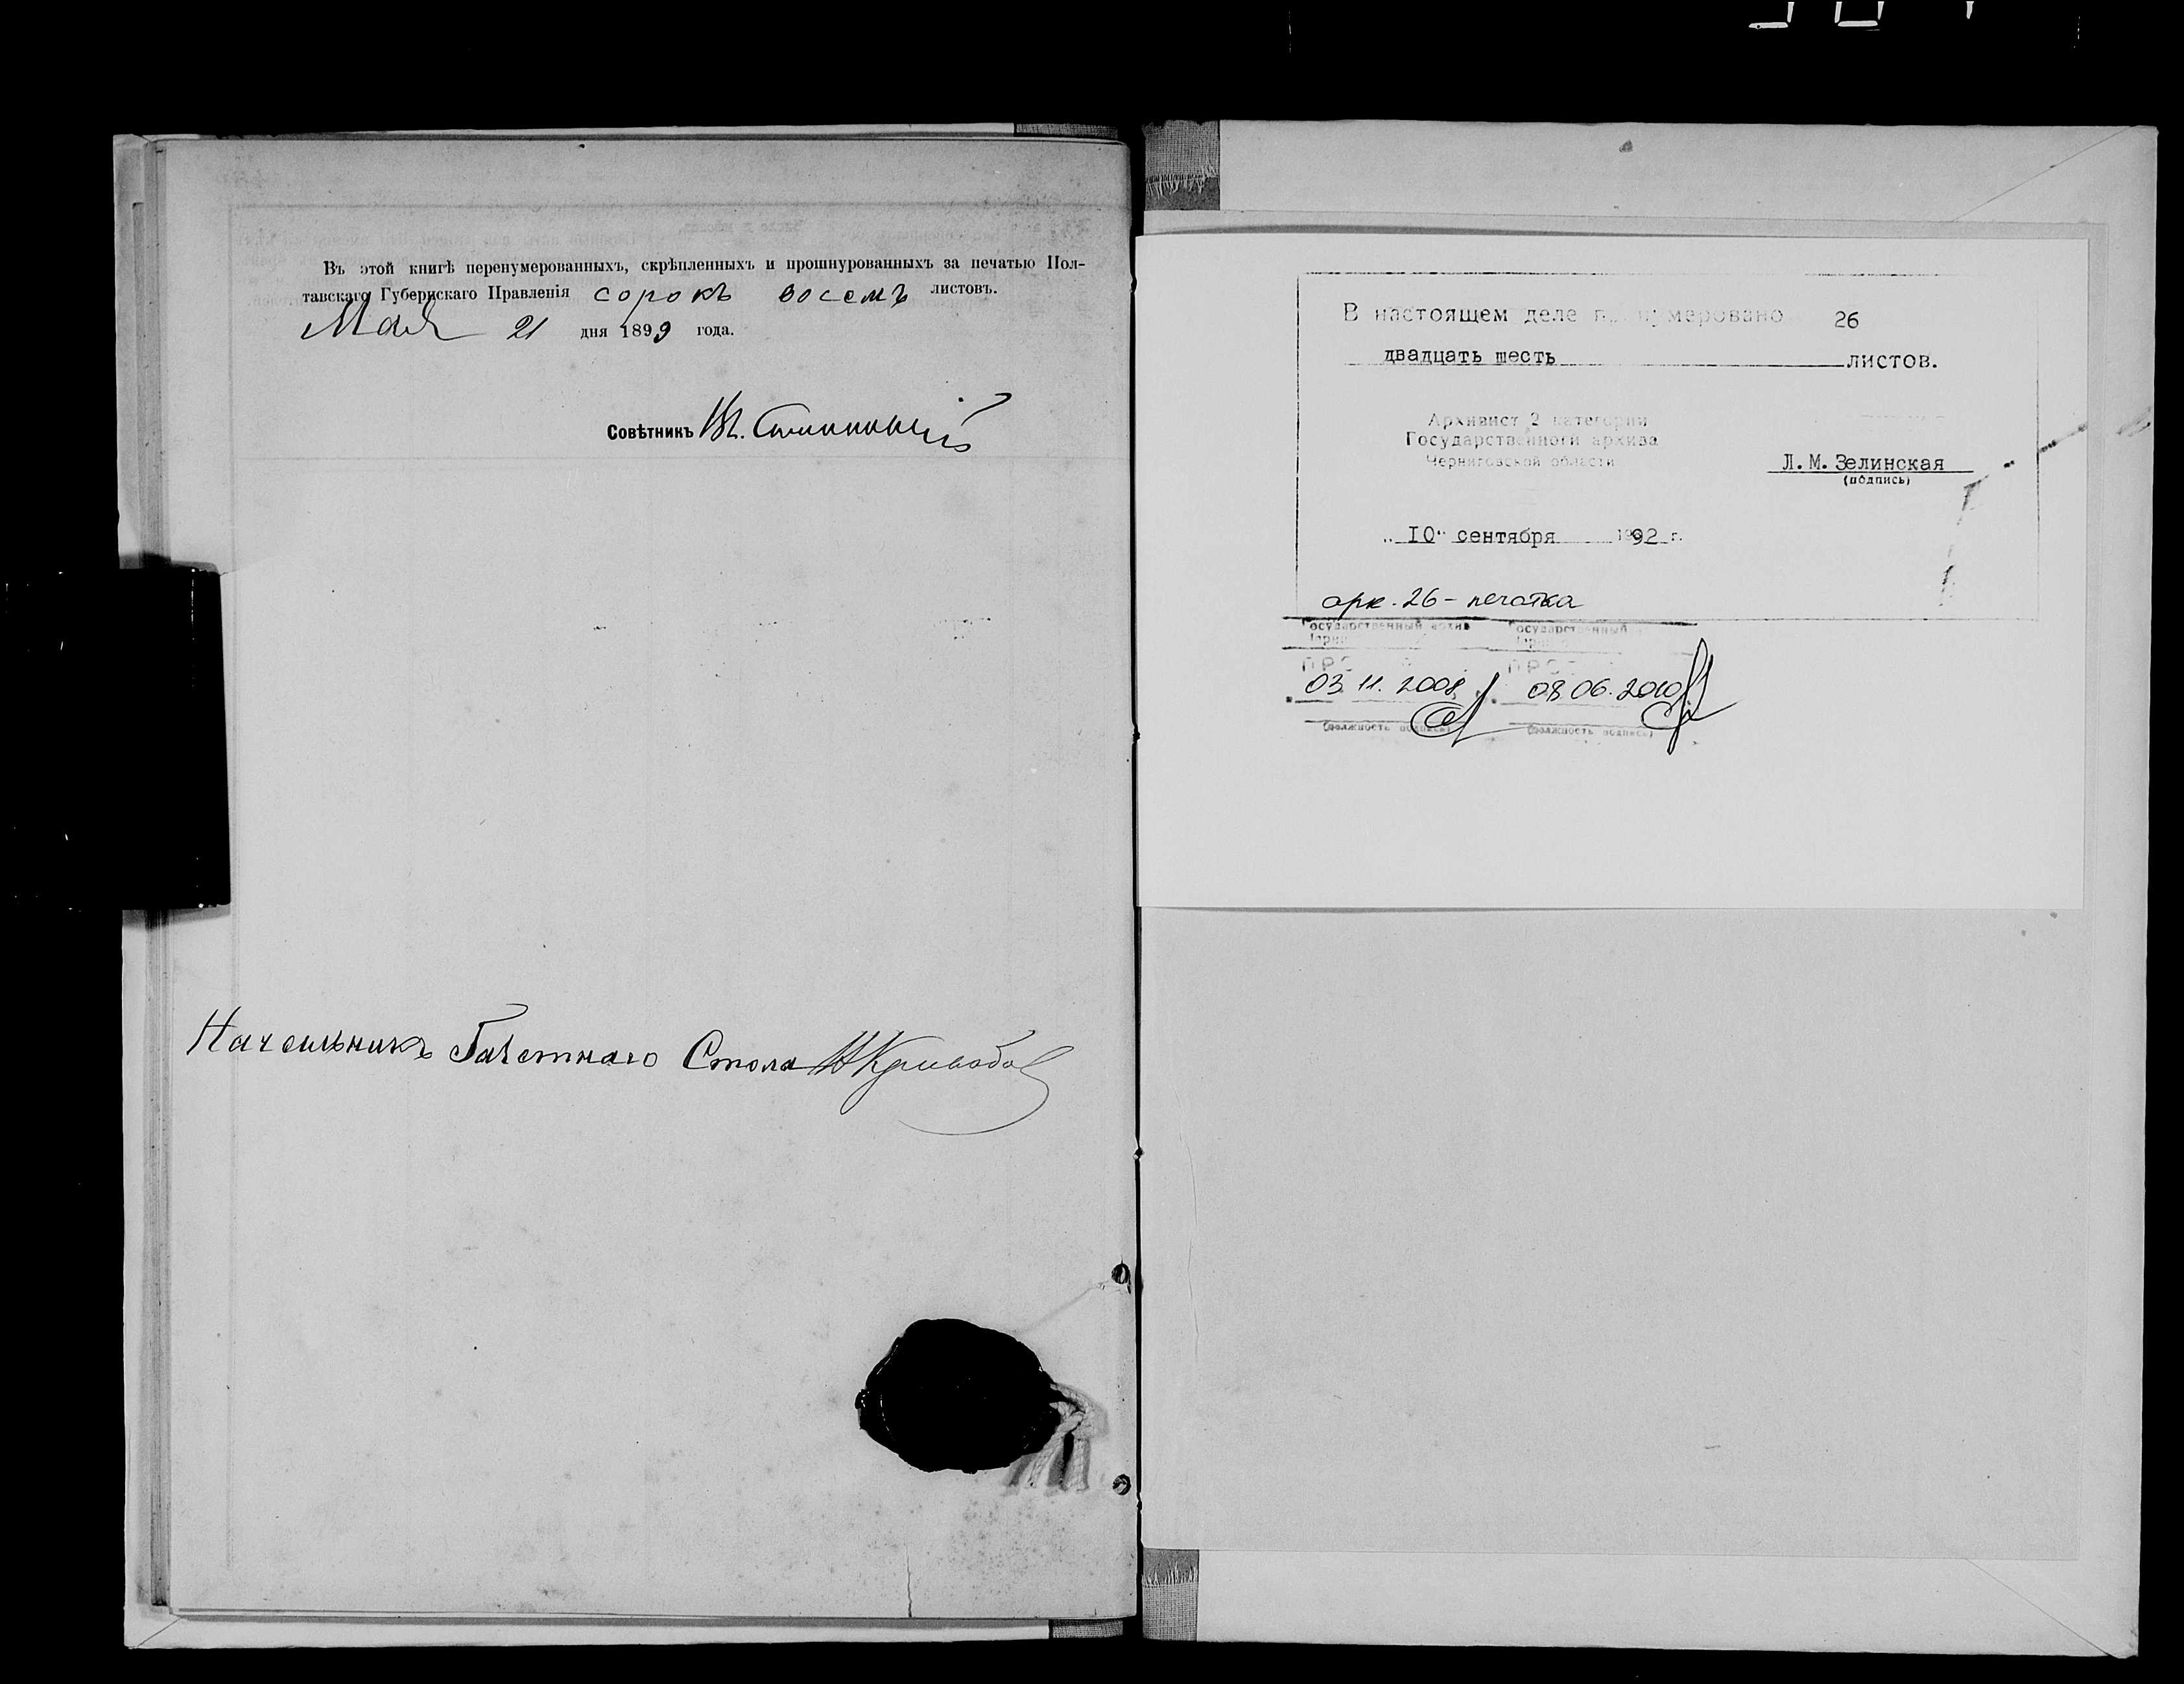 Въ этой книгѣ перенумерованныхъ, скрѣпленныхъ и прошнурованныхъ за печатью Пол-
тавскаго Губернскаго Правленія сорокъ восемъ листовъ.
Мая 21 дня 1899 года.
Совѣтникъ
Начальникъ Газетнаго Стола
В настоящем деле пронумеровано 26
двадцать шесть листов.
Архивист 2 категории
Государственного архива
Черниговской области
Л.М.Зелинская
(подпись)
„10" сентября 1992 г.
арк. 26 - печатка
Государственный архив Государственный
03.11.2008 08.06.2010
(должность подпись) (должность подпись)